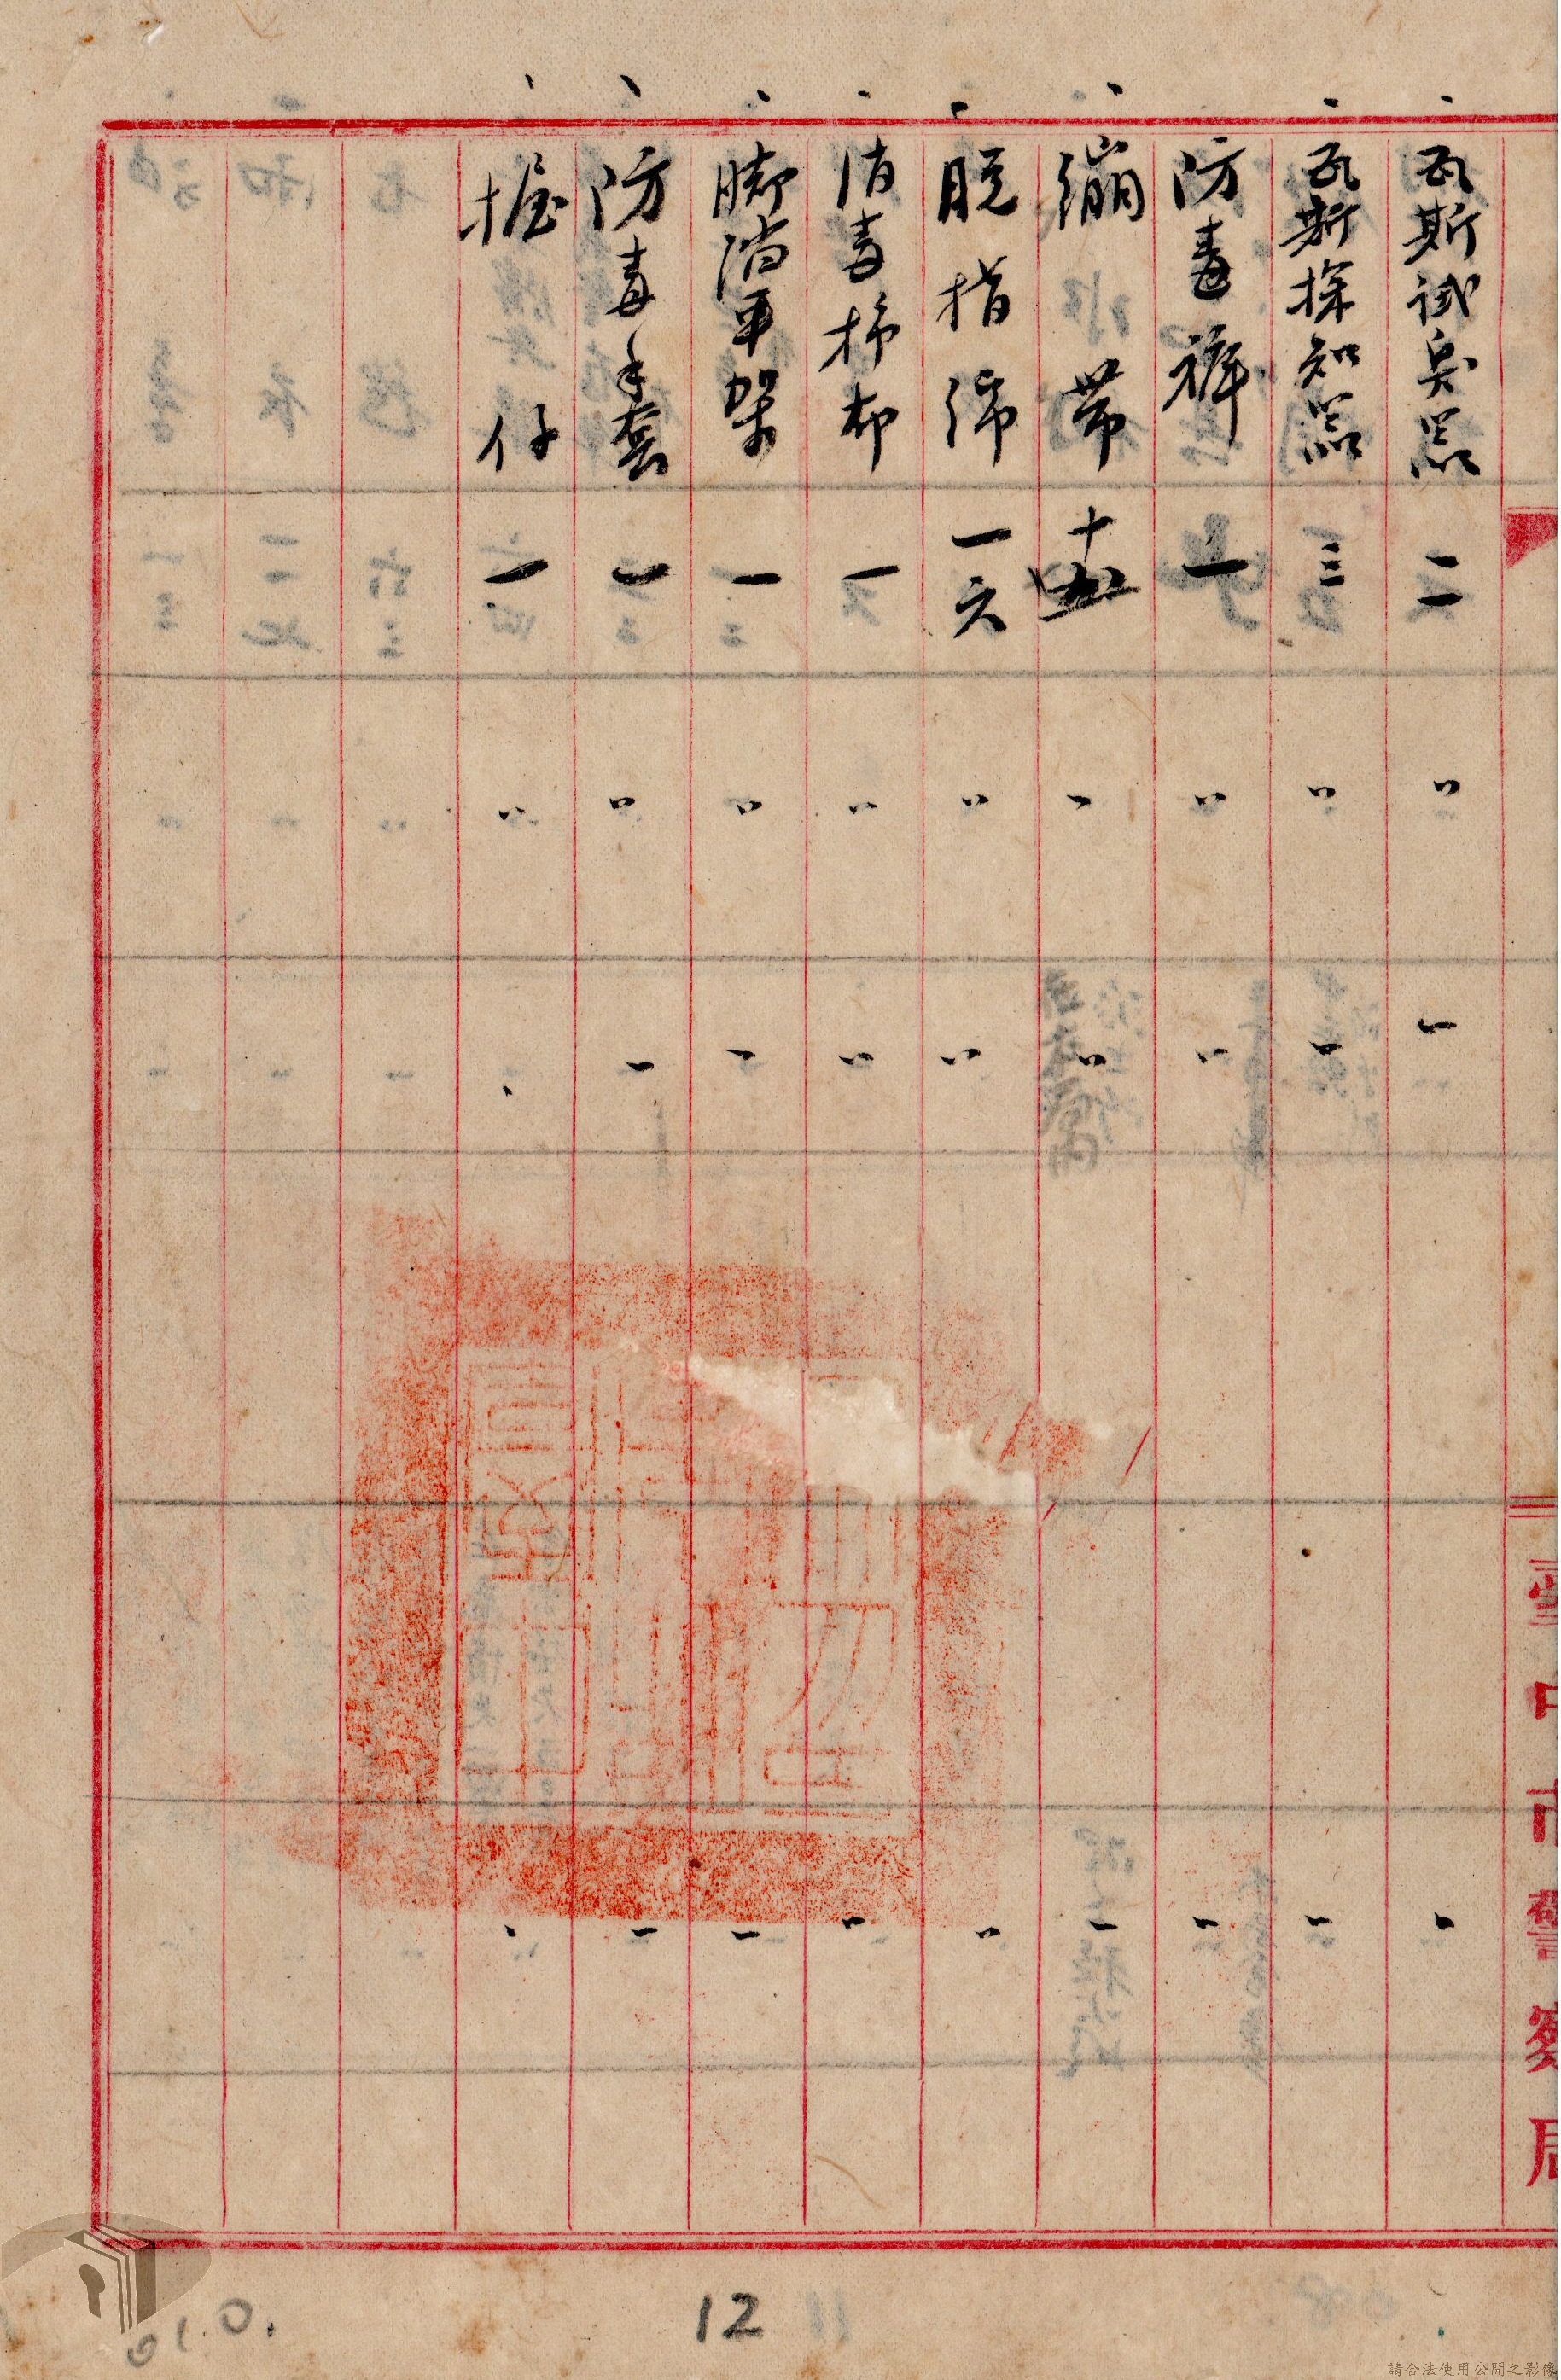 瓦斯試臭器 二一 〃 〃 〃
瓦斯探知器 三 〃 〃 〃
防毒褲 一 〃 〃 〃
繃帶 十五 〃 〃 〃
脫指綿 一六 〃 〃 〃
消毒掃布 一 〃 〃 〃
脚消平架 一 〃 〃 〃
防毒手套 一 〃 〃 〃
握仔 一 〃 〃 〃
臺中市警察局
12
請合法使用公開之影像